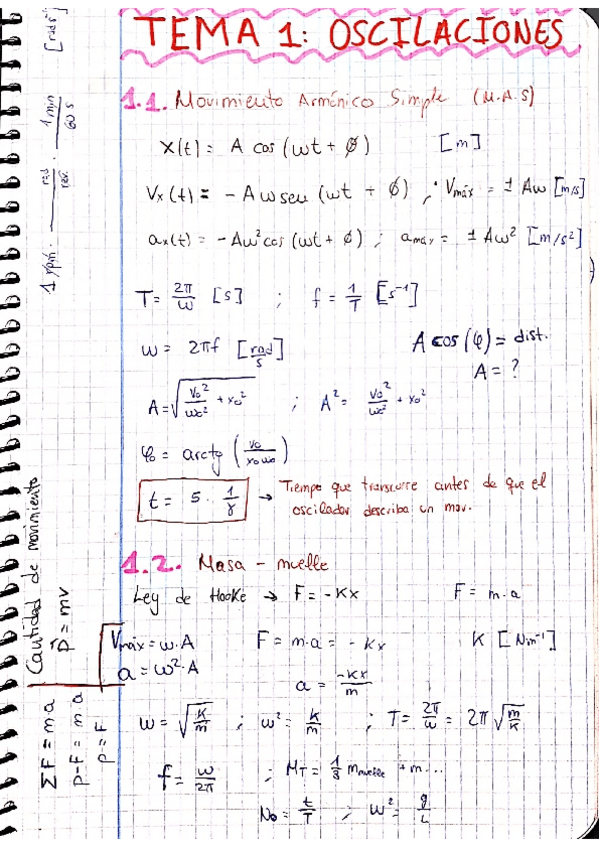 TEMA 1: OSCILACIONES
1.1. Movimiento Armónico Simple (M.A.S)
X(t) = A cos (ωt + ϕ) [m]
Vx (t) = - Aω sen (ωt + ϕ) ; Vmáx = ± Aω [m/s]
ax(t) = -Aω² cos (ωt + ϕ) ; amáx = ± Aω² [m/s²]
T = 2π/ω [s] ; f = 1/T [s⁻¹]
ω = 2πf [rad/s]
A cos (φ) = dist.
A = ?
A = √(v₀²/ω₀² + x₀²) ; A² = v₀²/ω₀² + x₀²
φ₀ = arctg (v₀/x₀ω₀)
t = 5 · 1/γ → Tiempo que transcurre antes de que el
oscilador describa un mov.
1.2. Masa - muelle
Ley de Hooke → F = - Kx F = m·a
Vmáx = ω·A F = m·a = - Kx K [Nm⁻¹]
a = ω²·A
a = -Kx/m
ω = √(K/m) ; ω² = K/m ; T = 2π/ω = 2π √(m/K)
f = ω/2π ; MT = 1/3 mmuelle + m...
No = t/T ; ω² = g/L
1 rpm · rad/rev. · 1 min/60 s [rad s⁻¹]
Cantidad de movimiento
p = mv
ΣF = m·a
P-F = m·a
P = F